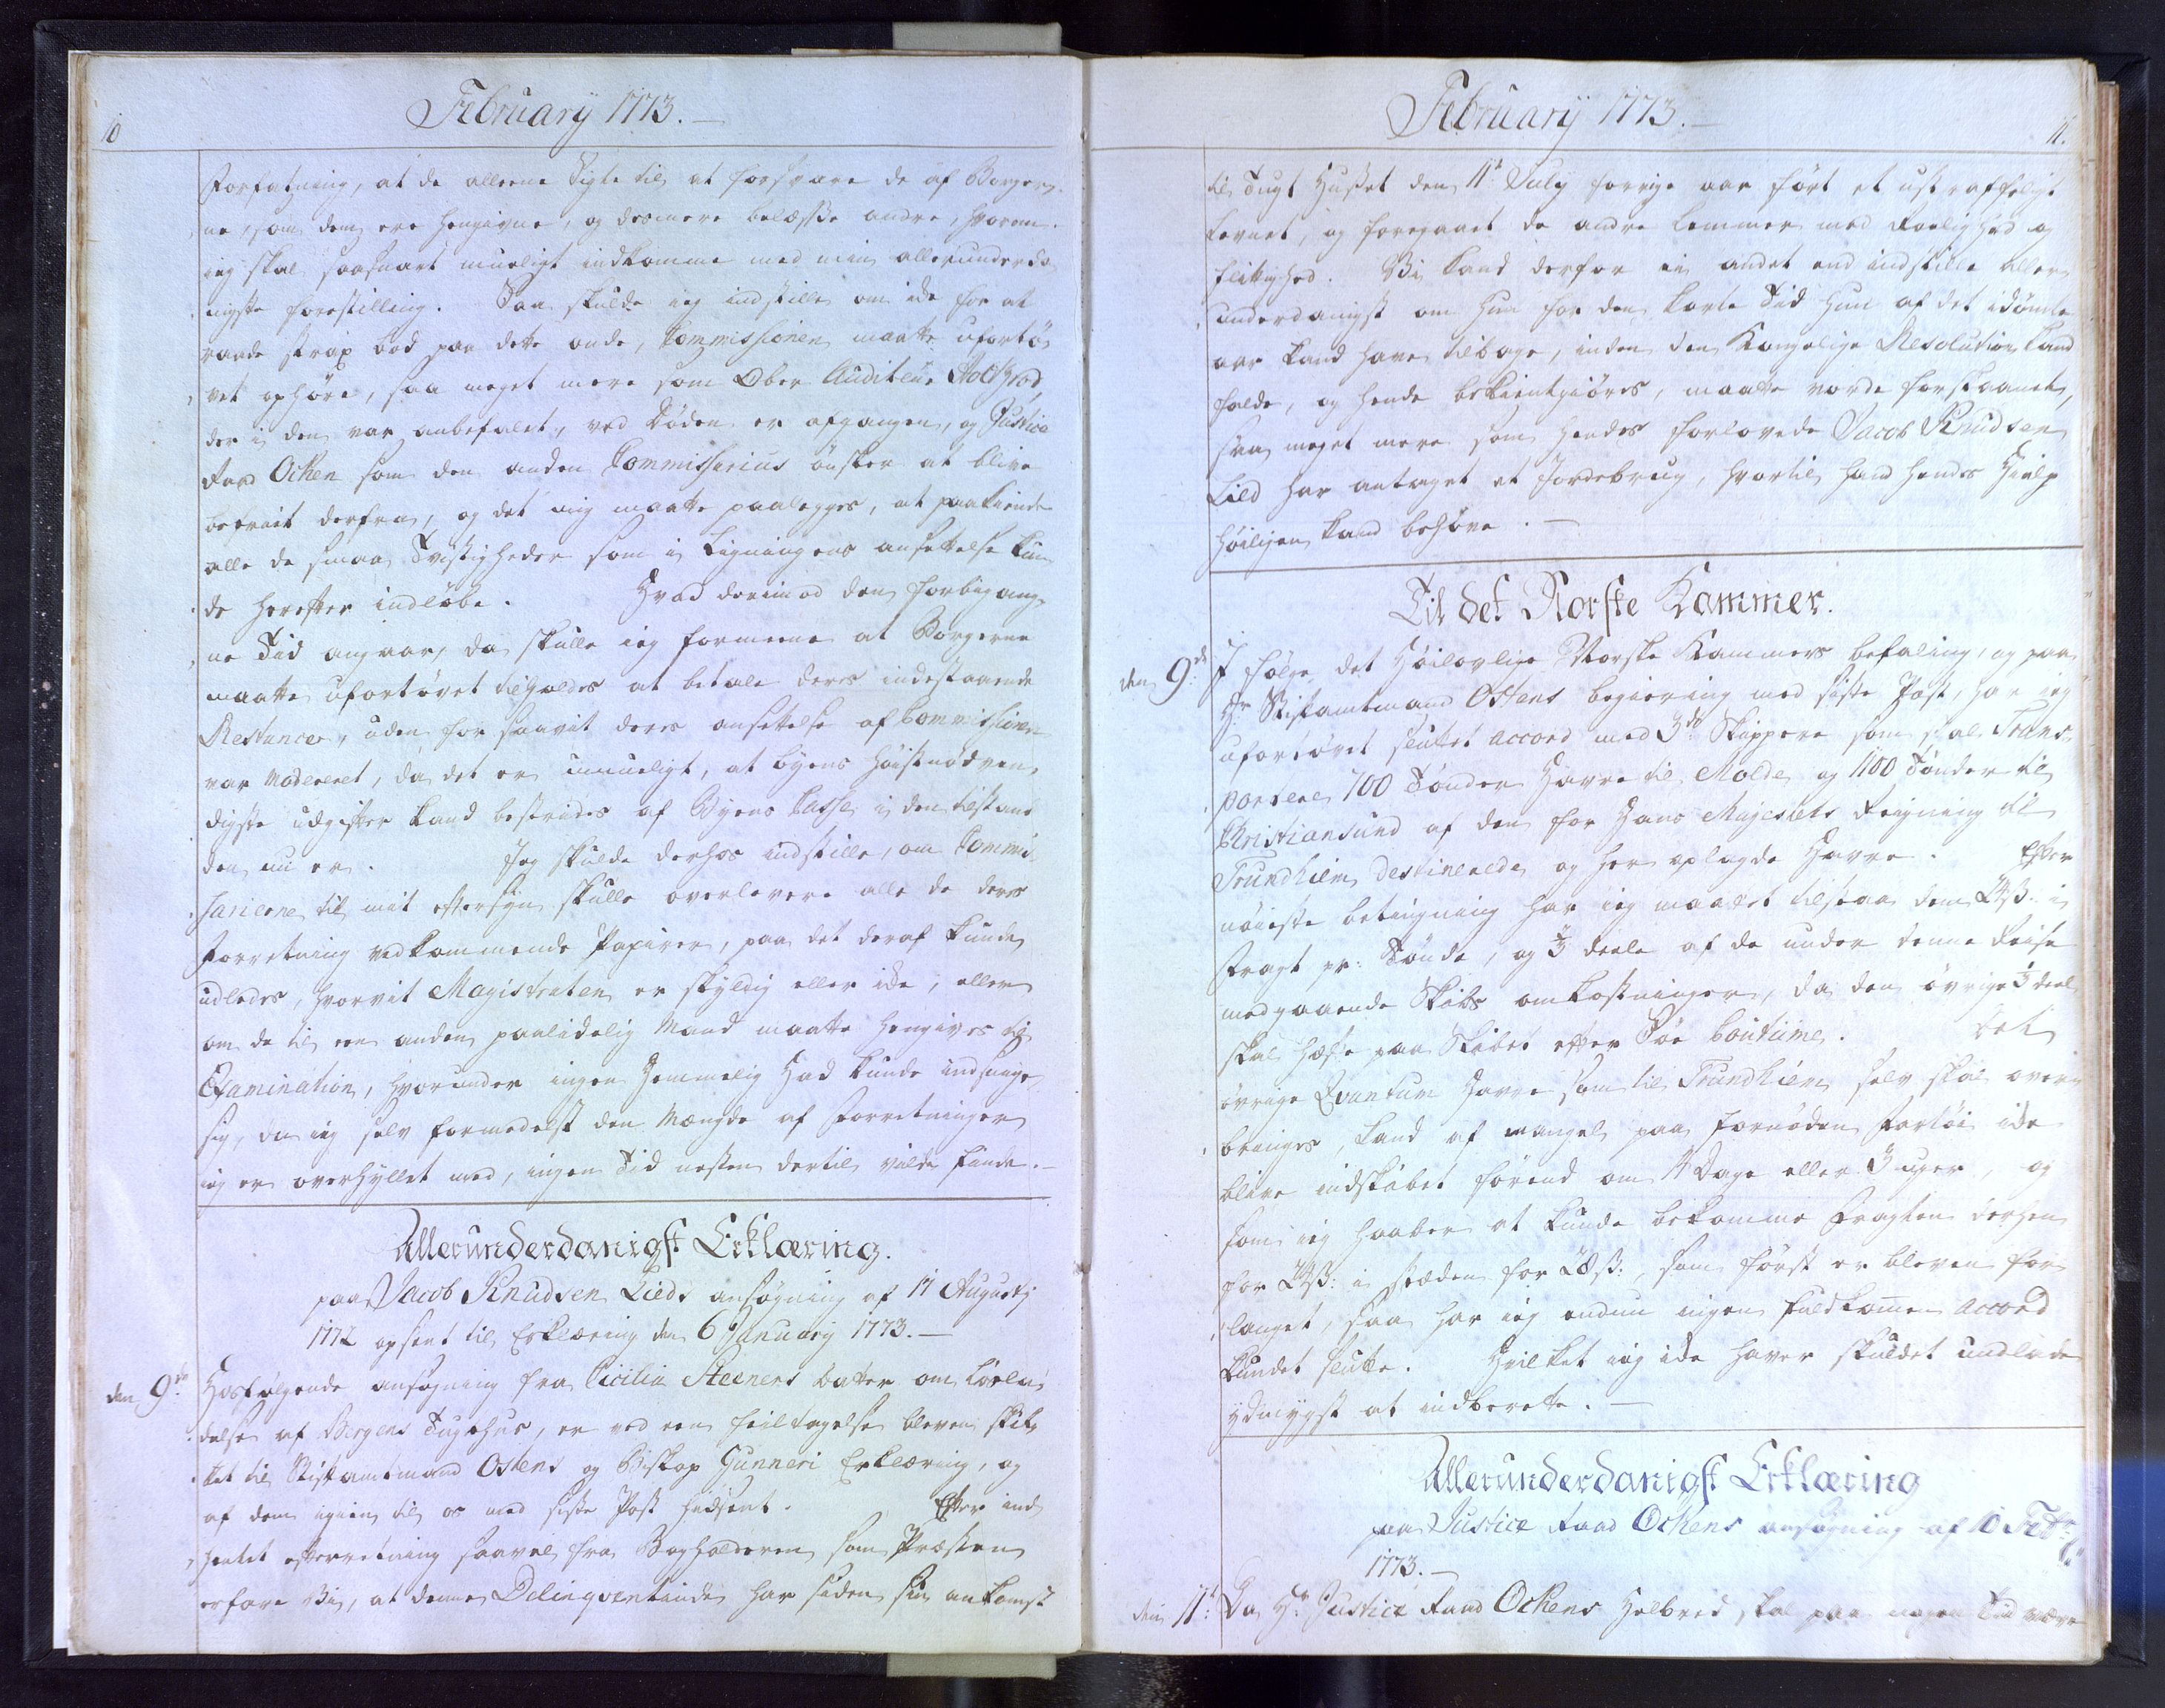 10
February 1773.
Forfatning, at de alleene Sigte til at forsvare de af Borger-
ne, som dem ere hengivne, og desmere belæsse andre, hvorom
jeg skal saasnart mueligt indkomme med min allerunderda-
nigste forestilling. Saa skulde jeg indstille om ide for at
raade strax bod paa dette onde, Commissionen maatte ufortö-
vet ophöre, saa meget mere som Ober Auditeur
der i den var anbefalet, ved Döden er afgangen, og Justice
Raad Ocken som den anden Commissarius önsker at blive
befriet derfra, og det mig maatte paalegges, at paakiende
alle de smaa Tvistigheder som i Ligningens ansettelse kun-
de herefter indlöbe. Hvad derimod den forbigang-
ne Tid angaar, da skulle jeg formeene at Borgerne
maatte ufortövet tilholdes at betale deres indestaaende
Restancer, uden for saavit deres ansettelse af Commissionen
var Modereret, da det er umueligt, at byens höistnödven-
digste udgifter kand bestrides af Byens Casse i den tilstand
den nu er. Jeg skulde derhos indstille, om Commis-
sarierne til mit eftersyn skulle overlevere alle de deres
Forretning vedkommende Papirer, paa det deraf kunde
udledes, hvorvit Magistraten er skyldig eller ide, eller
om de til een anden paalidelig Mand maatte hengives til
Examination, hvorunder ingen Hemmelig Had kunde indsnige
sig, da jeg selv formedelst den Mængde af Forretninger
jeg er overhyllet med, ingen Tid nesten dertil vilde finde.
Allerunderdanigst Erklæring.
paa Jacob Knudsen Lieds ansögning af 11 Augusti
1772 opsent til Erklæring den 6 January 1773.
den 9de Hosfölgende ansögning fra Cicilia Steeners datter om Lösla-
delse af Bergens Tugthus, er ved een feiltagelse bleven skik-
ket til Stiftamtmand Ostens og Biskop Gunneri Erklæring, og
af dem igien til os med siste Post hidsent. Efter ind-
hentet efterretning saavel fra Bogholderen som Præsten
erfare Vi, at denne Delinqventinde har siden sin ankomst
February 1773.
11.
til Tugt Huset den 11te July forrige aar fört et ustraffeligt
Levnet, og foregaaet de andre Lemmer med Roelighed og
flittighed. Vi kand derfor ei andet end indstille aller-
underdanigst om hun for den korte Tid hun af det idömte
aar kand have tilbage, inden den Kongelige Resolution kand
falde, og hende bekientgiöres, maatte vorde forskaanet,
saa meget mere som hendes forlovede Jacob Knudsen
Lied har antaget et Jordebrug, hvortil hand hendes Hielp
höiligen kand behöve.
Til det Norske Kammer.
den 9de I fölge det Höilovlige Norske Kammers befaling, og paa
Hr Stiftamtmand Ostens begiering med siste Post, har jeg
ufortövet sluttet accord med 3de Skippere som skal Trans-
portere 700 Tönder Havre til Molde og 1100 Tönder til
Christiansund af den for Hans Majestets Reigning til
Trundhiem destinerede og her oplagde Havre. Efter
nöieste betingning har jeg maattet tilstaae dem 24ß. i
Fragt pr: Tönde, og 2/3 deele af de under denne Reise
medgaaende Skibs omkostninger, da den övrige 1/3 deel
skal hæfte paa Skibet efter Söe Coutume. Det
övrige Qvantum Havre som til Trundhiem selv skal over-
bringes, kand af mangel paa fornöden Fartöi ide
blive indskibet förend om 14 Dage eller 3 uger, og
som jeg haaber at kunde bekomme Fragten derhen
for 24ß: i steden for 28ß:, som först er bleven for-
langet, saa har jeg endnu ingen fuldkommen accord
kundet slutte. Hvilket jeg ide haver skuldet undlade
ydmygst at indberette.
Allerunderdanigst Erklæring
paa Justice Raad Ockens ansögning af 10 Febr:
1773.
den 11te Da Hr Justice Raad Ockens Helbred skal paa nogen Tid være